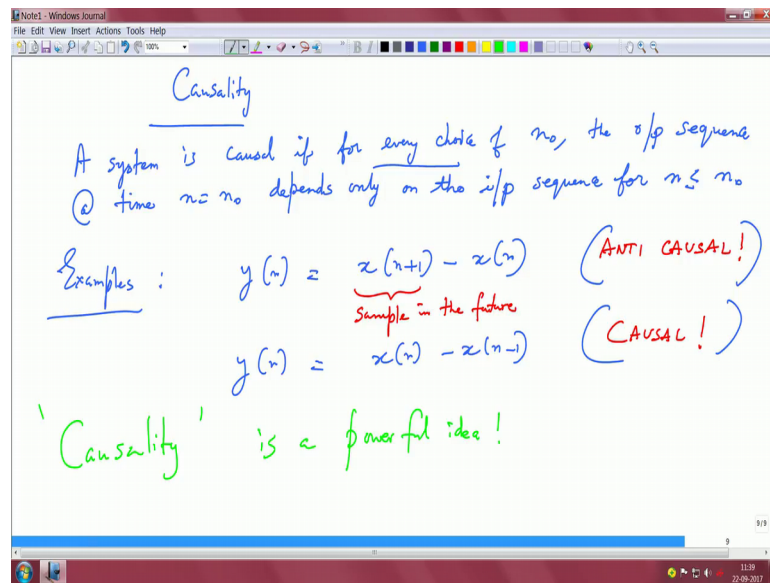 Note1 - Windows Journal
File Edit View Insert Actions Tools Help
100%
Causality
A system is causal if for every choice of n₀, the o/p sequence
@ time n = n₀ depends only on the i/p sequence for n ≤ n₀
Examples : y(n) = x(n+1) - x(n) (ANTI CAUSAL!)
sample in the future
y(n) = x(n) - x(n-1) (CAUSAL!)
'Causality' is a powerful idea!
9/9
9
11:39
22-09-2017